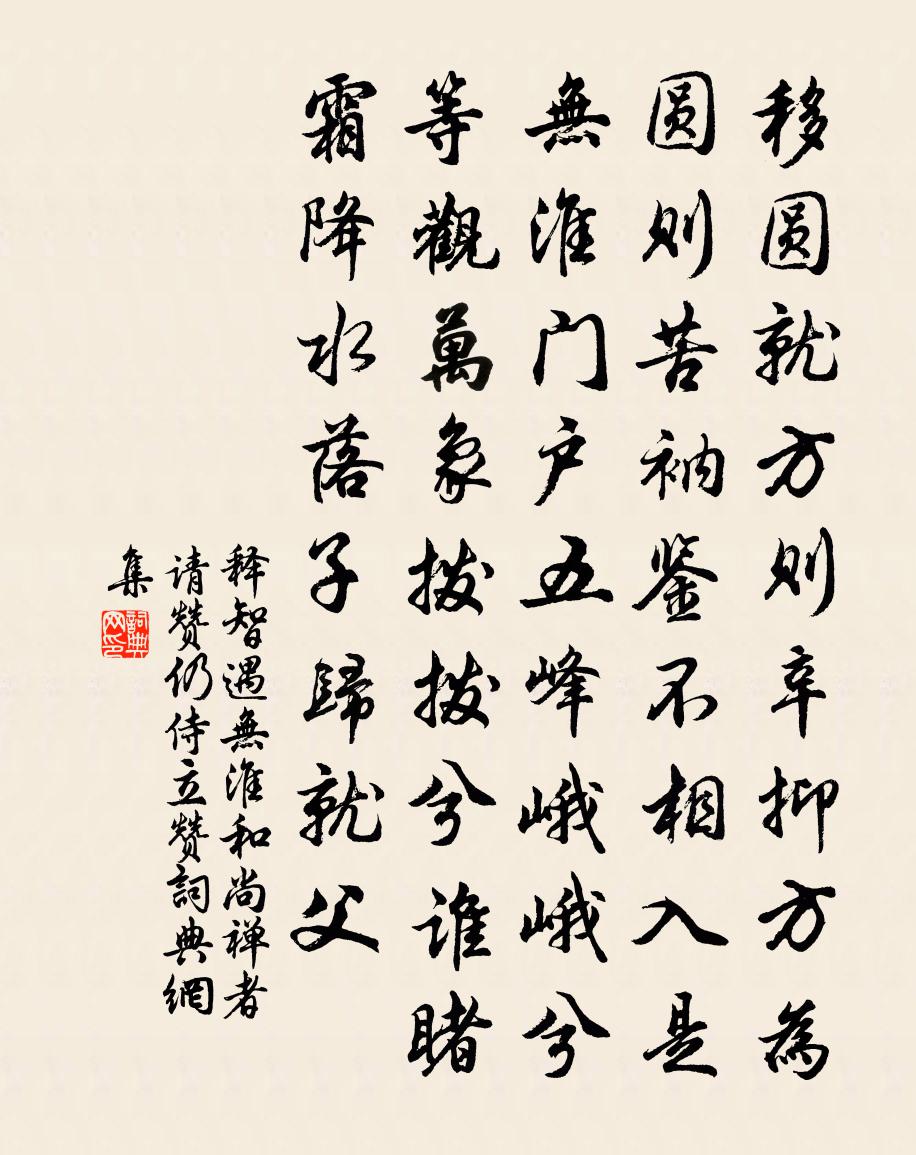 移圆就方则辛抑方為
圆则苦衲鉴不相入是
無准门户五峰峨峨兮
等觀萬象拨拨兮谁睹
霜降水落子歸就父
释智遇無准和尚禅者
请赞仍侍立赞詞典網
集
詞典网印